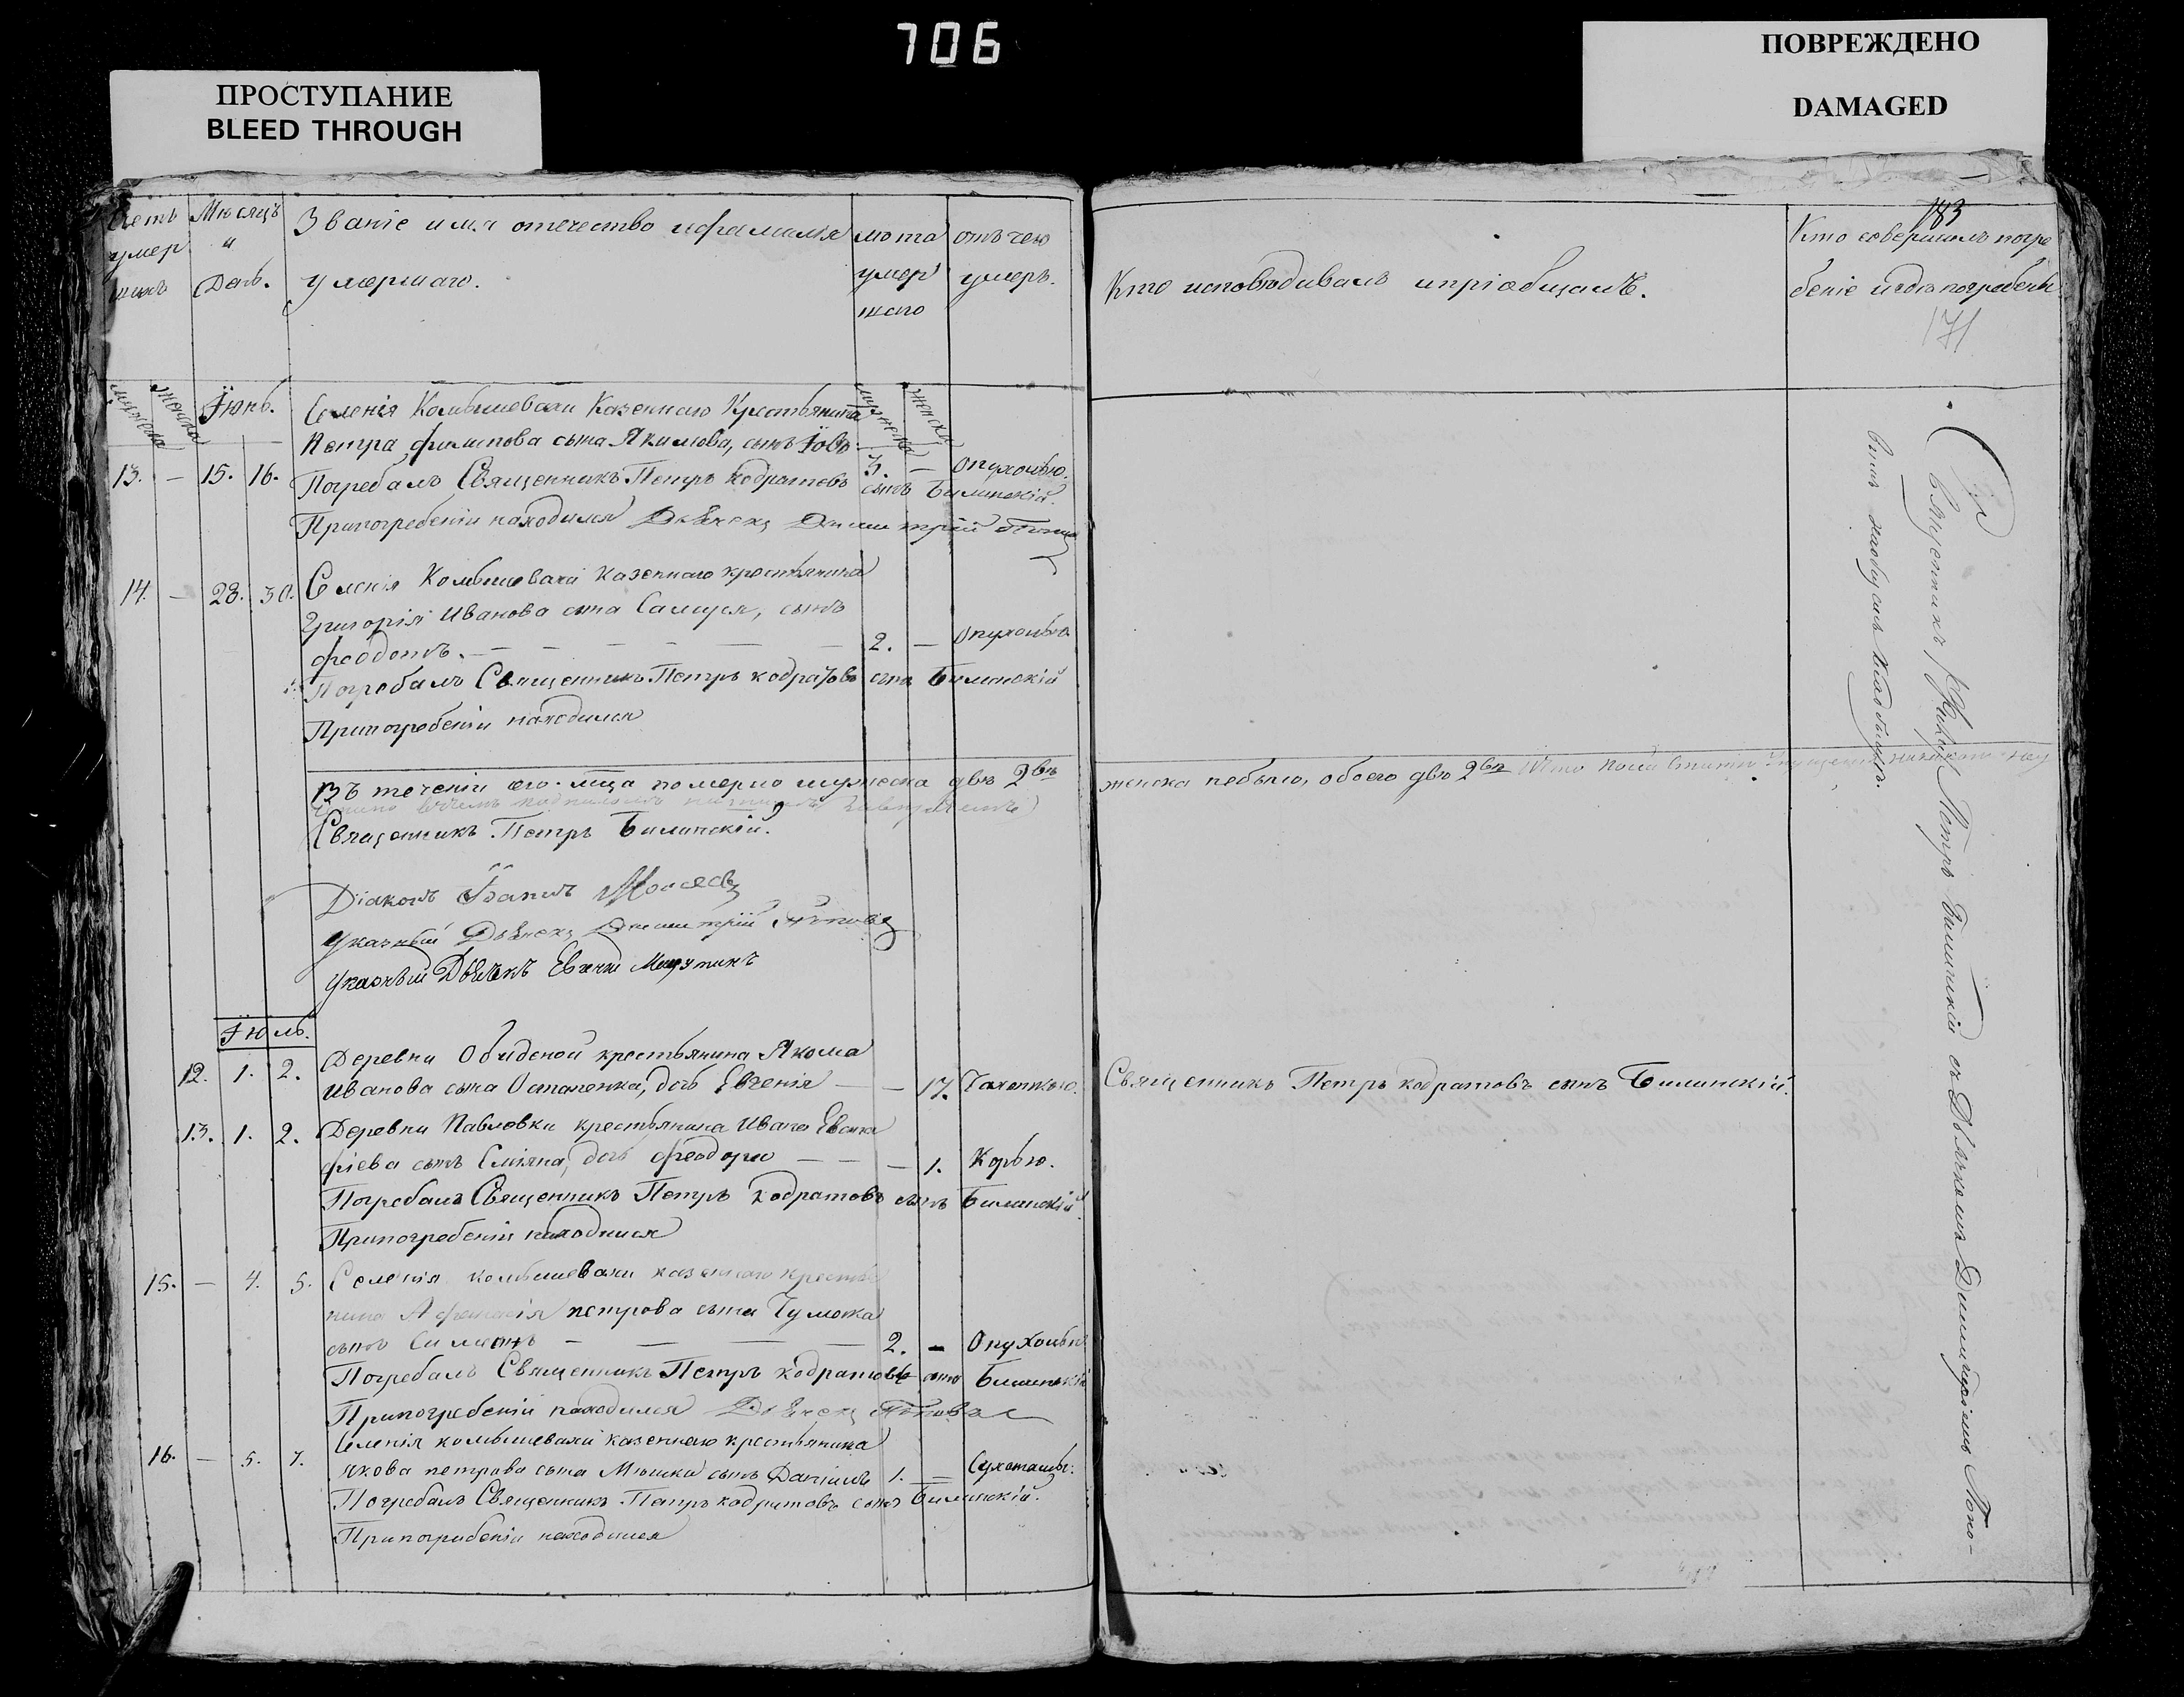 706
ПРОСТУПАНИЕ
BLEED THROUGH
ПОВРЕЖДЕНО
DAMAGED
Счетъ умер шихъ
Мѣсяцъ и День.
Званіе имя отечество ифамилія
умершаго.
лѣта умер шаго
отъ чего умеръ.
мужеска женска
Їюнь.
мужеска женска
Селенія Комышевахи Казеннаго Крестьянина
Петра филипова сына Якимова, сынъ Їовъ.
13. — 15. 16. 3. — Опухолью.
Погребалъ Священникъ Петръ кодратовъ сынъ Билинскій.
Припогребеніи находился Дьячекъ Димитрій Поповъ
14. — 28. 30. Селенія Комышевахи казеннаго крестьянина
Григорія Иванова сына Самуся, сынъ
феодотъ. — — — — — 2. — Опухолью
Погребалъ Священникъ Петръ кодратовъ сынъ Билинскій
Припогребеніи находился
Въ теченіи сего м-ца померло мужеска двѣ 2вѣ
Священникъ Петръ Билинскій.
Діаконъ Моисеевъ
Указный Дьячекъ Димитрій Поповъ
Указный Дьячекъ
Їюль.
12. 1. 2. Деревни крестьянина Якова
Иванова сына Остапенка, дочь Евгенія — — 17. Чахоткою.
13. 1. 2. Деревни Павловки крестьянина Ивана Евста
фіева сынъ дочь феодора — — — 1. Корью.
Погребалъ Священникъ Петръ кодратовъ сынъ Билинскій.
Припогребеніи находился
15. — 4. 5. Селенія комышевахи казеннаго крестья
нина Афанасія петрова сына Чумака
сынъ Симеонъ — — — — 2. — Опухолью
Погребалъ Священникъ Петръ кодратовъ сынъ Билинскій
Припогребеніи находился Дьячекъ Поповъ
16. — 5. 7. Селенія комышевахи казеннаго крестьянина
якова петрова сына сынъ Даніилъ 1. — Сухотамы.
Погребалъ Священникъ Петръ кодратовъ сынъ Билинскій.
Припогребеніи находился
Кто исповѣдивалъ ипріобщалъ.
183
Кто совершалъ погре
беніе и гдѣ погребены
171
женска небыло, обоего двѣ 2вѣ
Священникъ Петръ кодратовъ сынъ Билинскій.
Священникъ Петръ Билинскій съ Дьячкомъ Димитріемъ Попо-
вымъ Кладбищѣ.